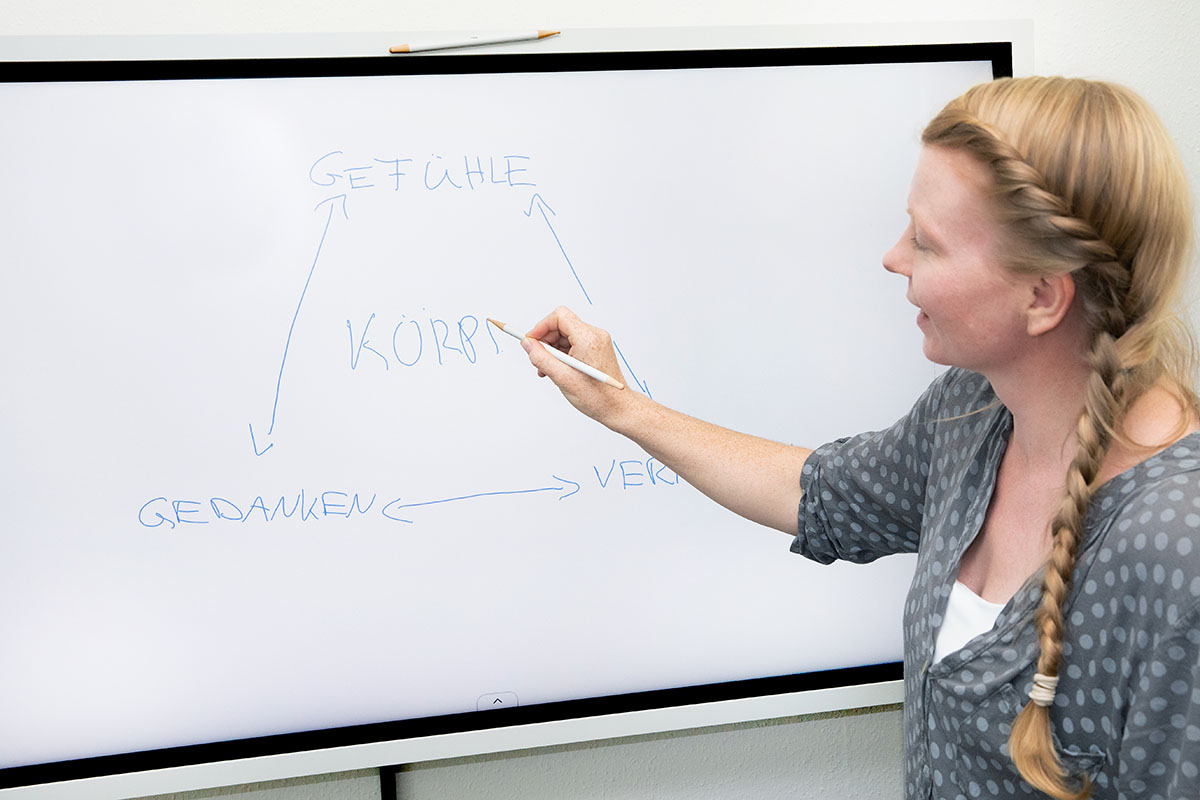 GEFÜHLE
KÖRP
GEDANKEN
VER